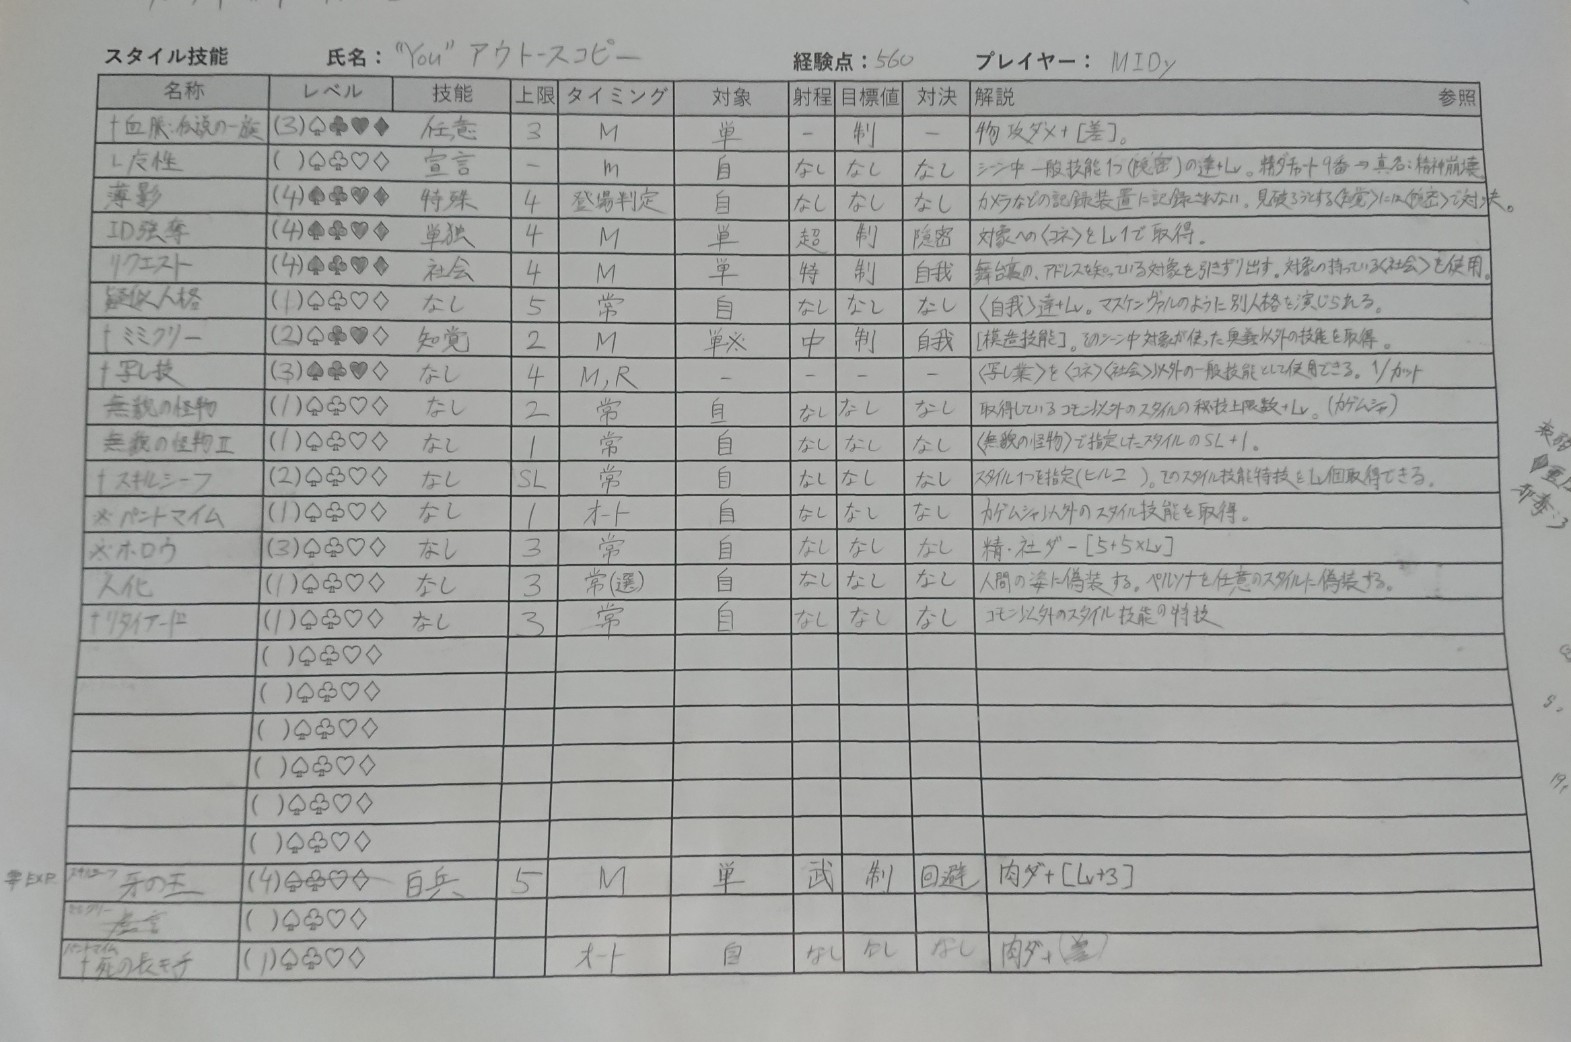 スタイル技能 氏名： “You” アウトースコピー 経験点：560 プレイヤー： MIDy
名称 レベル 技能 上限 タイミング 対象 射程 目標値 対決 解説 参照
†血脈:伝説の一族 (3)♤♣♥♦ 任意 3 M 単 - 制 - 物攻ダメ+[差]。
( )♤♧♡♢ 宣言 - m 自 なし なし なし シーン中一般技能1つ(隠密)の達+Lv。精ダチャート9番→真名:精神崩壊。
薄影 (4)♠♣♥♦ 特殊 4 登場判定 自 なし なし なし カメラなどの記録装置に記録されない。見破ろうとする〈知覚〉には〈隠密〉で対決。
ID強奪 (4)♠♣♥♦ 単独 4 M 単 超 制 隠密 対象への〈コネ〉をLv1で取得。
リクエスト (4)♠♣♥♦ 社会 4 M 単 特 制 自我 舞台裏の、アドレスを知っている対象を引きずり出す。対象の持っている〈社会〉を使用。
疑似人格 (1)♤♧♡♢ なし 5 常 自 なし なし なし 〈自我〉達+Lv。マスケンヴァルのように別人格を演じられる。
†ミミクリー (2)♤♣♥♢ 知覚 2 M 単※ 中 制 自我 [模造技能]。そのシーン中対象が使った奥義以外の技能を取得。
†写し技 (3)♠♣♥♢ なし 4 M,R - - - - 〈写し業〉を〈コネ〉〈社会〉以外の一般技能として使用できる。1/カット
無貌の怪物 (1)♤♧♡♢ なし 2 常 自 なし なし なし 取得しているコモン以外のスタイルの秘技上限数+Lv。(カゲムシャ)
無貌の怪物II (1)♤♧♡♢ なし 1 常 自 なし なし なし 〈無貌の怪物〉で指定したスタイルのSL+1。
†スキルシーフ (2)♤♧♡♢ なし SL 常 自 なし なし なし スタイル1つを指定(ヒルコ )。そのスタイル技能特技をLv個取得できる。
※パントマイム (1)♤♧♡♢ なし 1 オート 自 なし なし なし カゲムシャ以外のスタイル技能を取得。
※ホロウ (3)♤♧♡♢ なし 3 常 自 なし なし なし 精・社ダ-[5+5×Lv]
人化 (1)♤♧♡♢ なし 3 常(選) 自 なし なし なし 人間の姿に偽装する。ペルソナを任意のスタイルに偽装する。
†リタイアード (1)♤♧♡♢ なし 3 常 自 なし なし なし コモン以外のスタイル技能の特技
( )♤♧♡♢
( )♤♧♡♢
( )♤♧♡♢
( )♤♧♡♢
( )♤♧♡♢
( )♤♧♡♢
スキルシーフ 牙の王 (4)♤♧♡♢ 白兵 5 M 単 武 制 回避 肉ダ+[Lv+3]
ミミクリー ( )♤♧♡♢
パントマイム †死の長モチ (1)♤♧♡♢ オート 自 なし なし なし 肉ダ+(差)